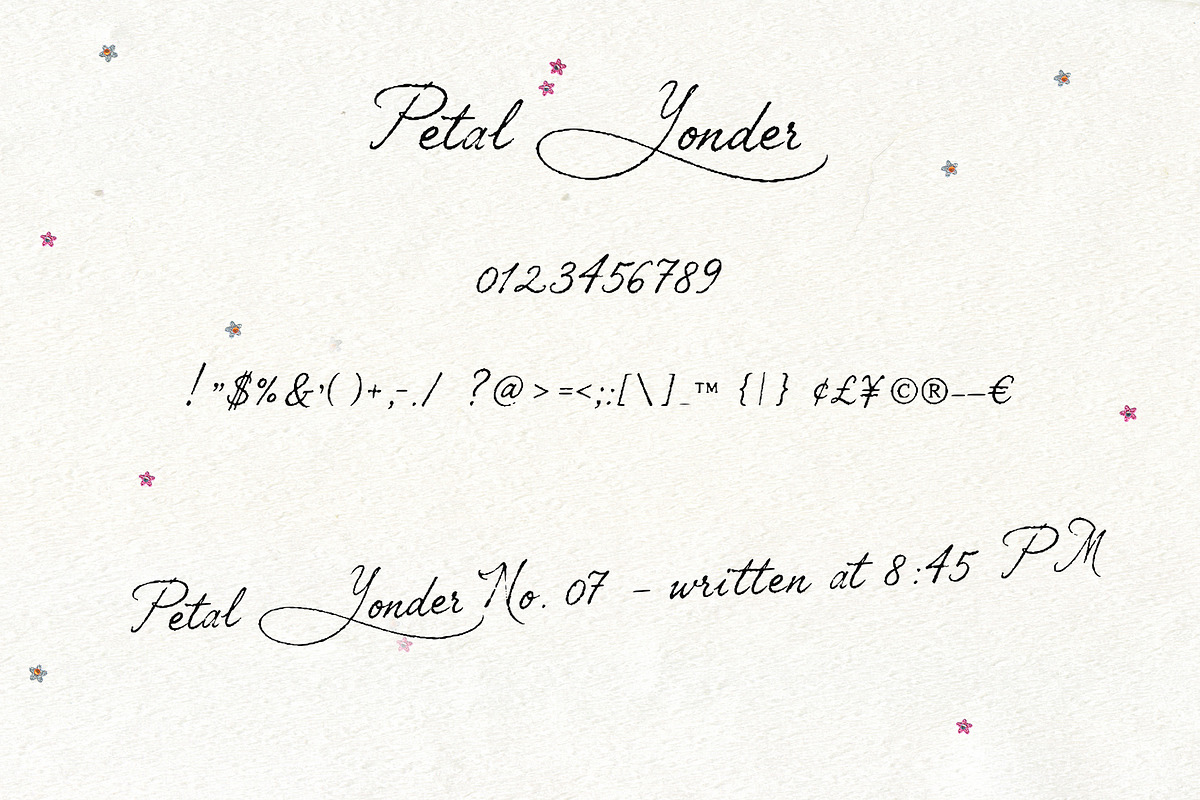 Petal Yonder
0123456789
!"$%&'( )+,-./ ?@>=<;:[\]_™ {|} ¢£¥©®–—€
Petal Yonder No. 07 – written at 8:45 PM